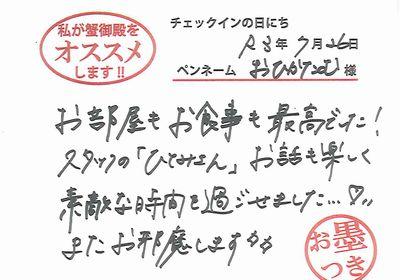 私が蟹御殿を
オススメ
します!!
チェックインの日にち
R3年7月26日
ペンネーム おひがたむ 様
お部屋もお食事も最高でした!
スタッフの「ひとみさん」お話も楽しく
素敵な時間を過ごせました...♡〃
またお邪魔します
お墨
つき